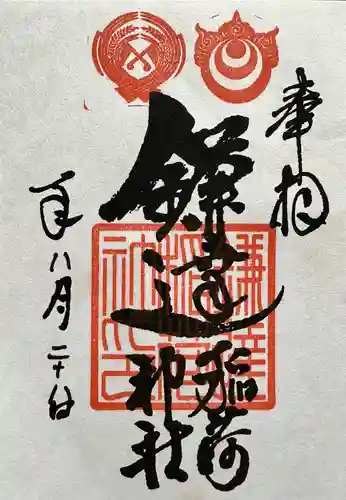 奉拝
鎌達稲荷
神社
八月二十日